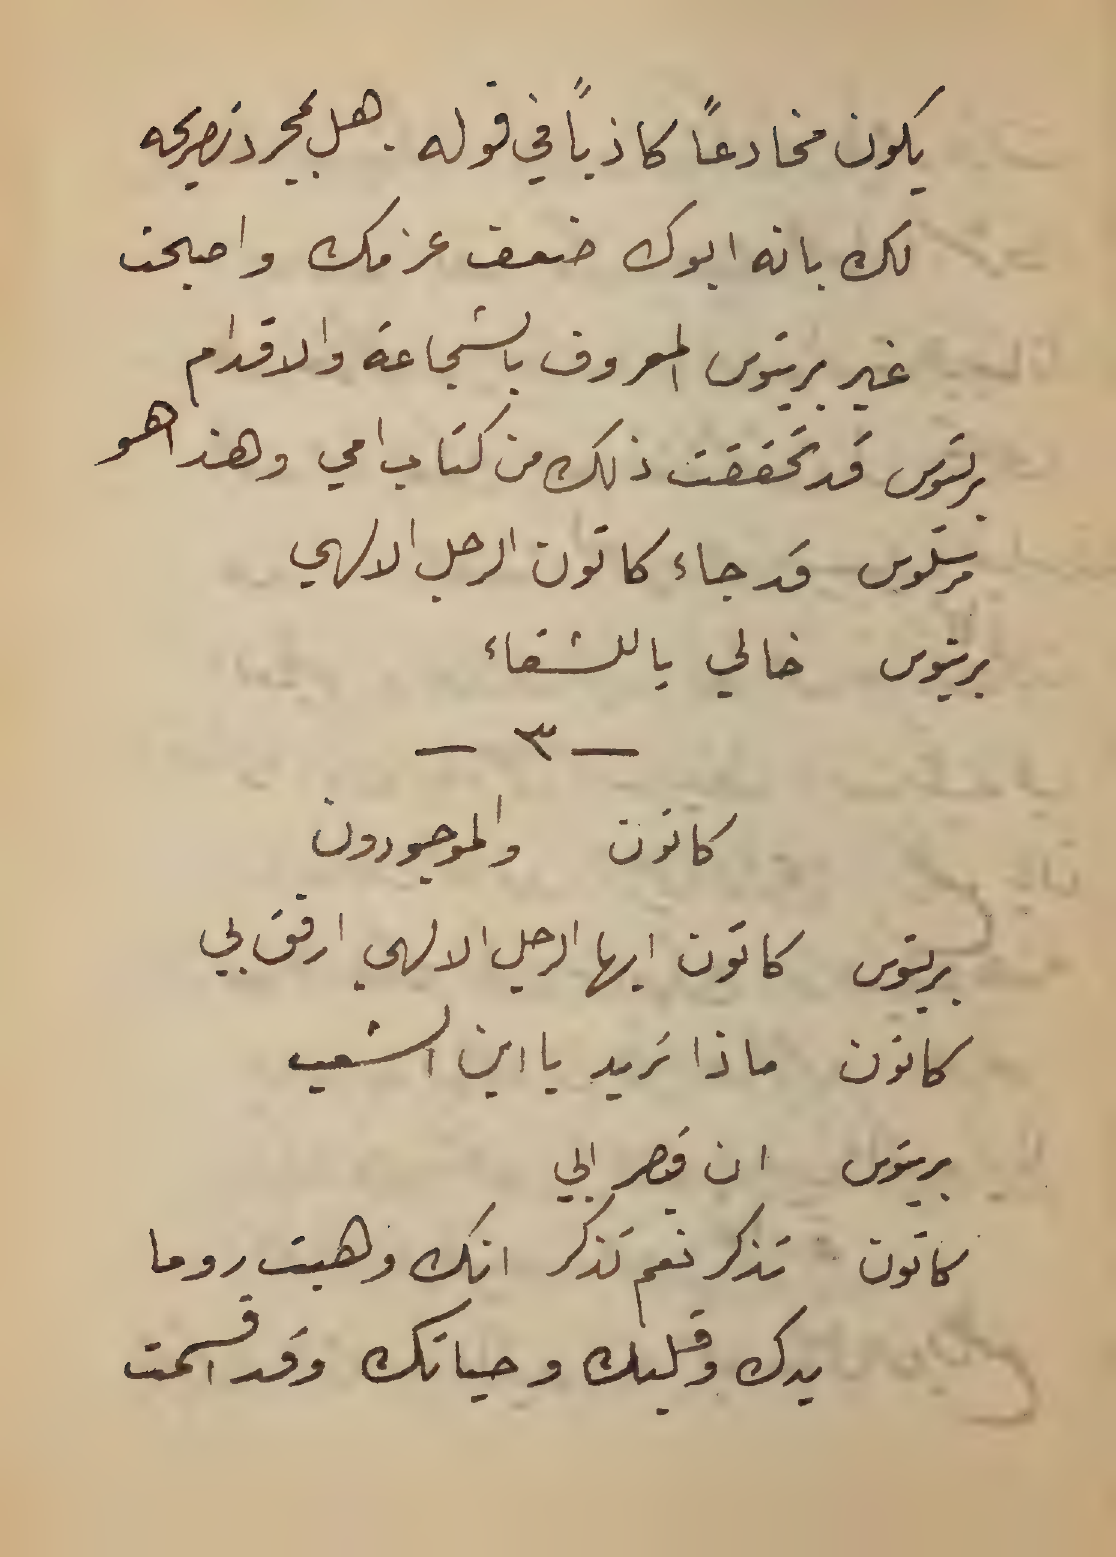 يكون مخادعاً كاذباً في قوله . هل بمجرد تصريحه
لك بانه ابوك ضعف عزمك واصبحت
غير بريتوس المعروف بالشجاعة والاقدام
بريتوس قد تحققت ذلك من كتاب امي وهذا هو
مرسلوس قد جاء كاتون الرجل الالهي
بريتوس خالي ياللشقاء
— ٣ —
كاتون والموجودون
بريتوس كاتون ايها الرجل الالهي ارفق بي
كاتون ماذا تريد يا ابن الشعب
بريتوس ان قيصر ابي
كاتون تذكر نعم تذكر انك وهبت روما
يدك وقلبك وحياتك وقد اقسمت